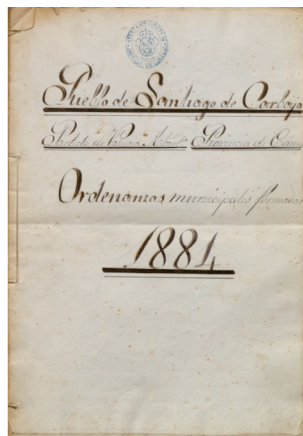 Pueblo de Santiago de Carbajo
Partido de Valencia Provincia de
Ordenanzas municipales formadas
1884